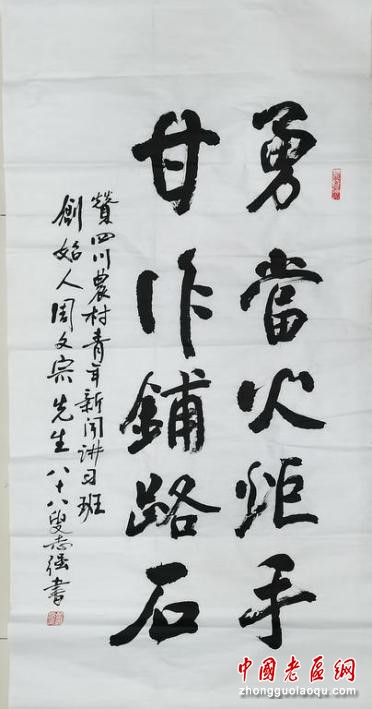 勇當火炬手
甘作鋪路石
贊四川農村青年新闻讲习班
創始人周文宗先生八十八叟志强書
中國老區網
zhongguolaoqu.com